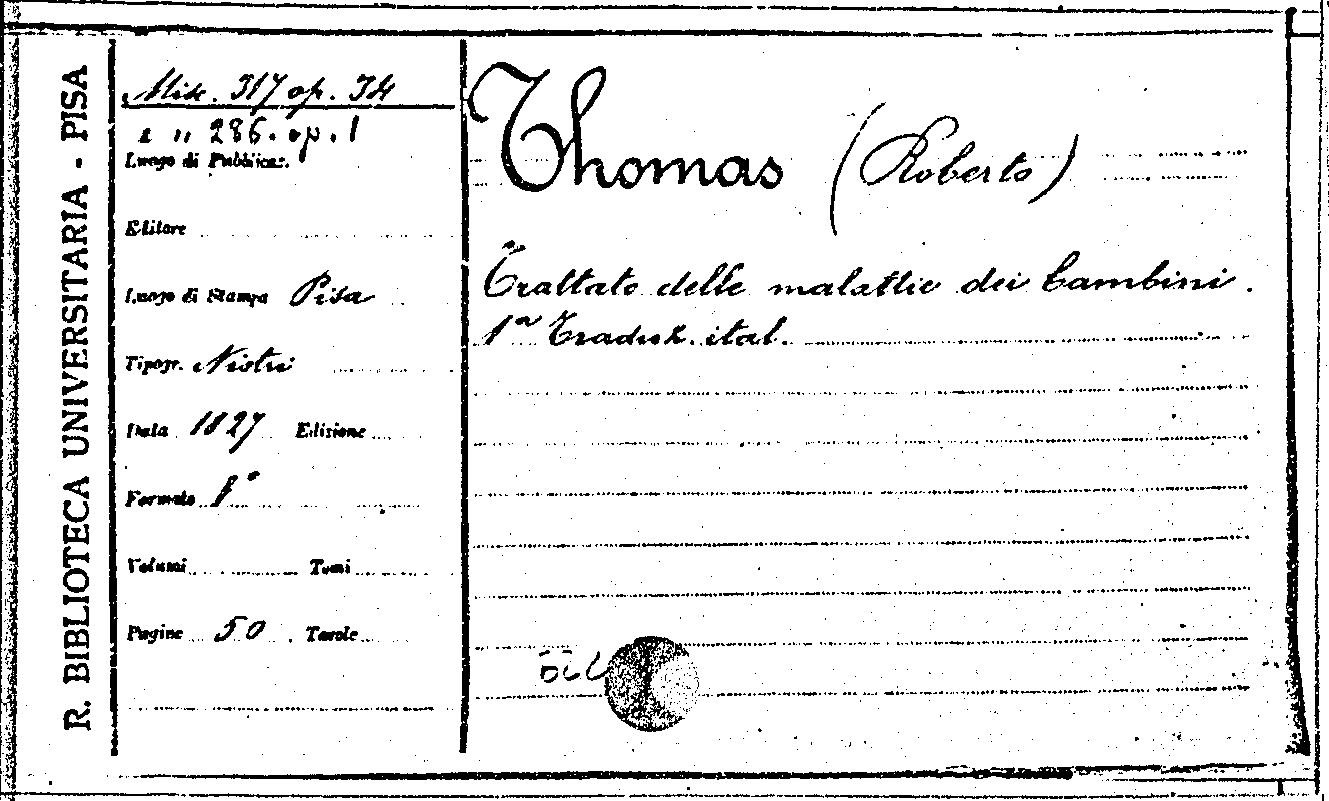 R. BIBLIOTECA UNIVERSITARIA - PISA
Misc. 317 op. 34
e " 286. op. 1
Luogo di Pubblicaz.
Editore
Luogo di Stampa Pisa
Tipogr. Nistri
Data 1827 Edizione
Formato 8°
Volumi Tomi
Pagine 50 Tavole
Thomas (Roberto)
Trattato delle malattie dei bambini.
1ª Traduz. ital.